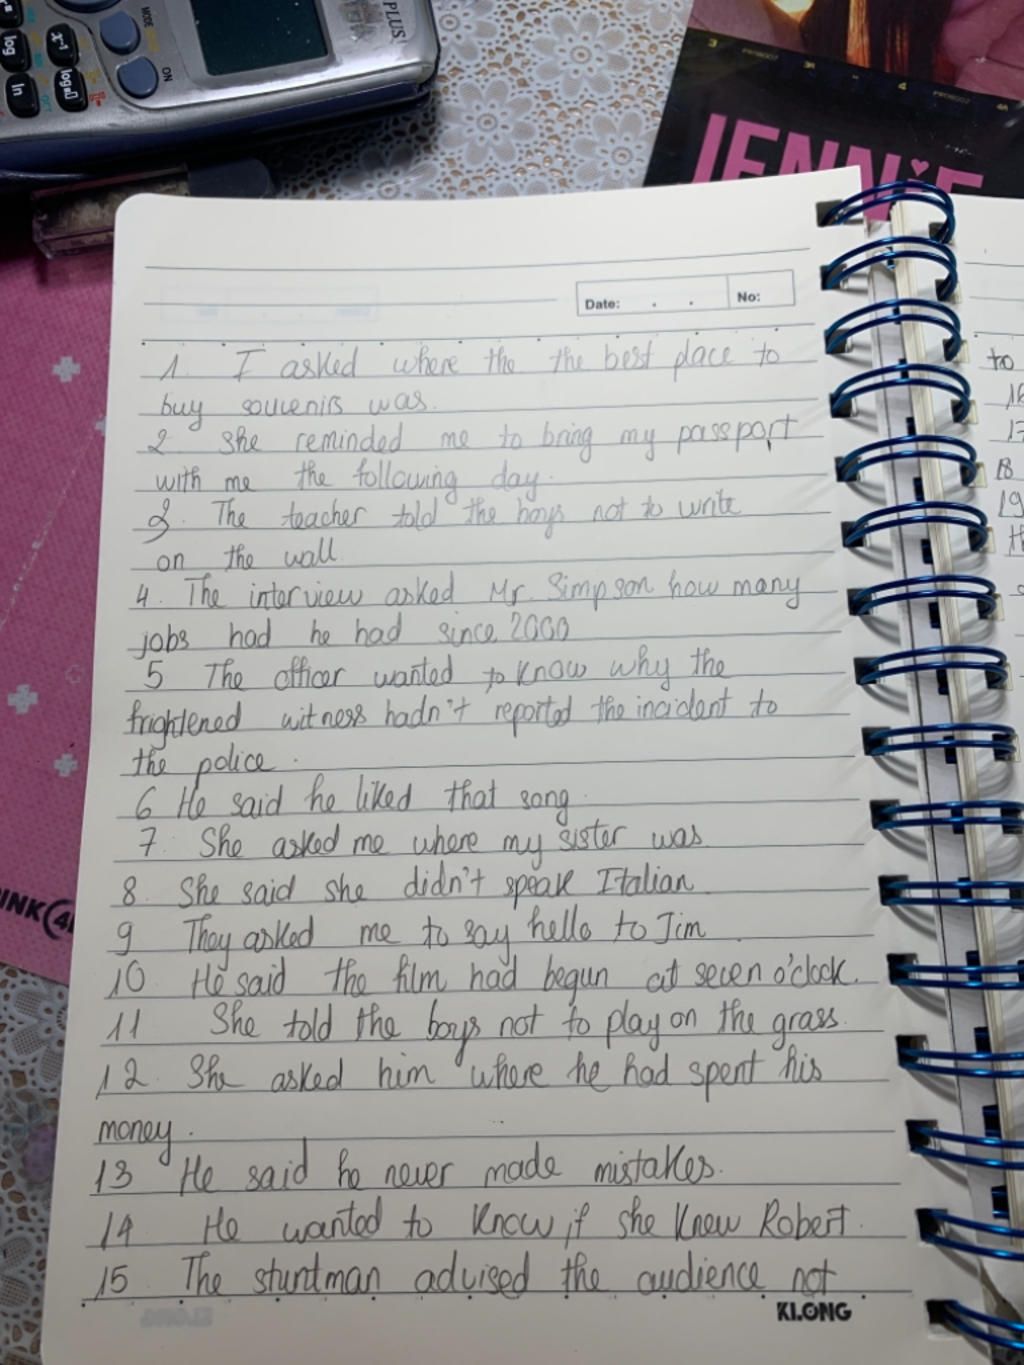 PLUS
MODE
ON
log
x⁻¹
ln
log▯
3
4
4A
JENNIE
Date: . . No:
1. I asked where the the best place to
buy souvenirs was.
2 She reminded me to bring my passport
with me the following day.
3. The teacher told the boys not to write
on the wall
4. The interview asked Mr. Simpson how many
jobs had he had since 2000
5 The officer wanted to know why the
frightened witness hadn't reported the incident to
the police.
6 He said he liked that song.
7. She asked me where my sister was
8. She said she didn't speak Italian
9 They asked me to say hello to Jim
10. He said the film had begun at seven o'clock.
11 She told the boys not to play on the grass.
12. She asked him where he had spent his
money.
13 He said he never made mistakes.
14 He wanted to know if she knew Robert.
15. The stuntman advised the audience not
KLONG
to
16
17
18
19